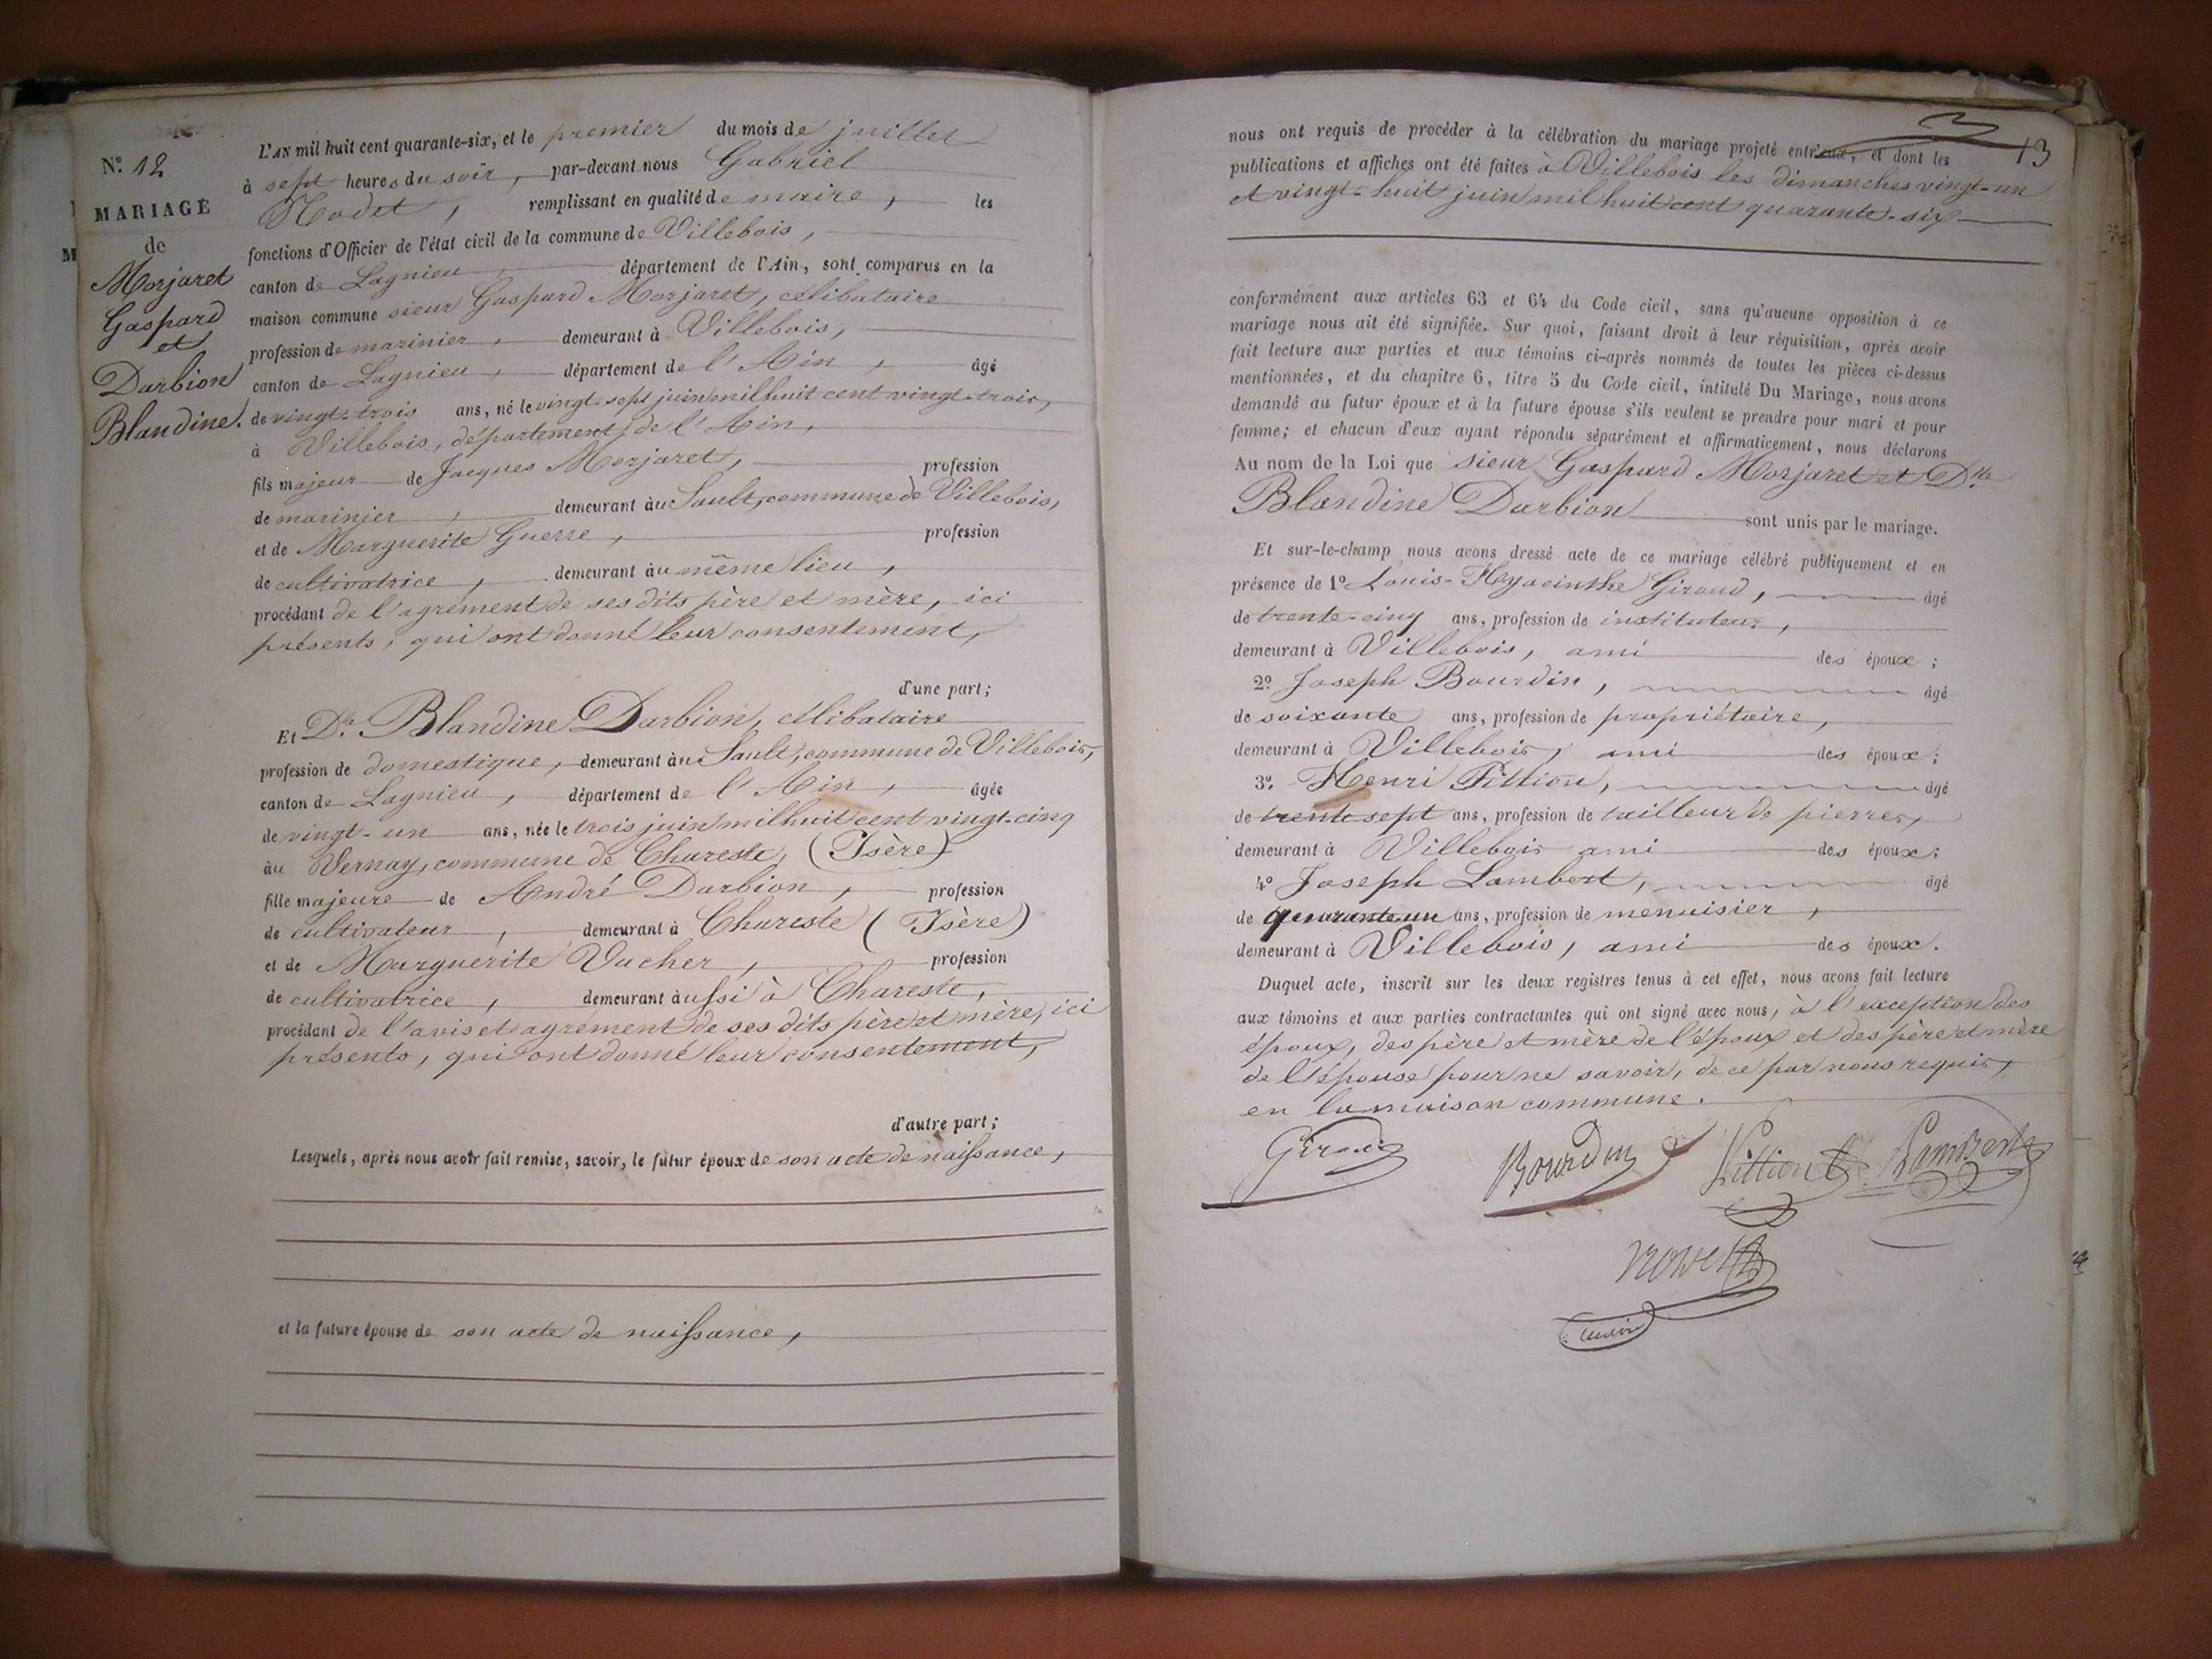 N.º 12
MARIAGE
de
Morjaret
Gaspard
et
Darbion
Blandine.
L'AN mil huit cent quarante-six, et le premier du mois de juillet
à sept heures du soir, par-devant nous Gabriel
Nodet, remplissant en qualité de maire, les
fonctions d'Officier de l'état civil de la commune de Villebois,
canton de Lagnieu département de l'Ain, sont comparus en la
maison commune sieur Gaspard Morjaret, célibataire
profession de marinier, demeurant à Villebois,
canton de Lagnieu, département de l'Ain, âgé
de vingt-trois ans, né le vingt-sept juin mil huit cent vingt-trois,
à Villebois, département de l'Ain,
fils majeur de Jacques Morjaret, profession
de marinier, demeurant àu Sault, commune de Villebois,
et de Marguerite Guerre, profession
de cultivatrice, demeurant àu même lieu,
procédant de l'agrément de ses dits père et mère, ici
présents, qui ont donné leur consentement,
d'une part;
Et Dlle Blandine Darbion, célibataire
profession de domestique, demeurant àu Sault, commune de Villebois,
canton de Lagnieu, département de l'Ain, âgée
de vingt-un ans, née le trois juin mil huit cent vingt-cinq
àu Vernay, commune de Chareste, (Isère)
fille majeure de André Darbion, profession
de cultivateur, demeurant à Chareste (Isère)
et de Marguerite Vacher, profession
de cultivatrice, demeurant àussi à Chareste,
procédant de l'avis et agrément de ses dits père et mère, ici
présents, qui ont donné leur consentement,
d'autre part;
Lesquels, après nous avoir fait remise, savoir, le futur époux de son acte de naissance,
et la future épouse de son acte de naissance,
13
nous ont requis de procéder à la célébration du mariage projeté entr'eux, et dont les
publications et affiches ont été faites à Villebois les dimanches vingt-un
et vingt-huit juin mil huit cent quarante-six
conformément aux articles 63 et 64 du Code civil, sans qu'aucune opposition à ce
mariage nous ait été signifiée. Sur quoi, faisant droit à leur réquisition, après avoir
fait lecture aux parties et aux témoins ci-après nommés de toutes les pièces ci-dessus
mentionnées, et du chapitre 6, titre 5 du Code civil, intitulé Du Mariage, nous avons
demandé au futur époux et à la future épouse s'ils veulent se prendre pour mari et pour
femme; et chacun d'eux ayant répondu séparément et affirmativement, nous déclarons
Au nom de la Loi que sieur Gaspard Morjaret et Dlle
Blandine Darbion sont unis par le mariage.
Et sur-le-champ nous avons dressé acte de ce mariage célébré publiquement et en
présence de 1º Louis-Hyacinthe Giroud, âgé
de trente-cinq ans, profession de instituteur,
demeurant à Villebois, ami des époux;
2º Joseph Bourdin, âgé
de soixante ans, profession de propriétaire,
demeurant à Villebois, ami des époux;
3º Henri Fittion, âgé
de trente sept ans, profession de tailleur de pierres,
demeurant à Villebois ami des époux;
4º Joseph Lambert, âgé
de quarante un ans, profession de menuisier,
demeurant à Villebois, ami des époux.
Duquel acte, inscrit sur les deux registres tenus à cet effet, nous avons fait lecture
aux témoins et aux parties contractantes qui ont signé avec nous, à l'exception des
époux, des père et mère de l'époux et des père et mère
de l'épouse pour ne savoir, de ce par nous requis,
en la maison commune.
Giroud Bourdin Fittion Lambert